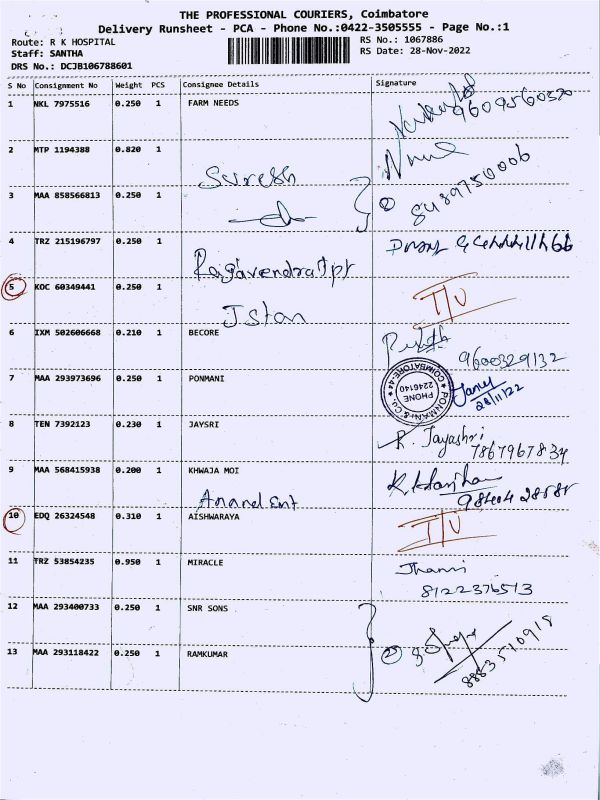 THE PROFESSIONAL COURIERS, Coimbatore
Delivery Runsheet - PCA - Phone No.:0422-3505555 - Page No.:1
Route: R K HOSPITAL
Staff: SANTHA
DRS No.: DCJB106788601
RS No.: 1067886
RS Date: 28-Nov-2022
S No Consignment No Weight PCS Consignee Details Signature
1 NKL 7975516 0.250 1 FARM NEEDS
9609560320
2 MTP 1194388 0.820 1
Suresh
3 MAA 858566813 0.250 1
② 8489750006
4 TRZ 215196797 0.250 1
Ragavendra Tpt
5 KOC 60349441 0.250 1 I/U
J Stan
6 IXM 502606668 0.210 1 BECORE
9600329132
7 MAA 293973696 0.250 1 PONMANI
PONMANI & CO. COIMBATORE-44
PHONE 2246140
28/11/22
8 TEN 7392123 0.230 1 JAYSRI
R. Jayashri
7867967834
9 MAA 568415938 0.200 1 KHWAJA MOI
Anand Ent
10 EDQ 26324548 0.310 1 AISHWARAYA I/U
11 TRZ 53854235 0.950 1 MIRACLE
8122376513
12 MAA 293400733 0.250 1 SNR SONS
13 MAA 293118422 0.250 1 RAMKUMAR
8883510918